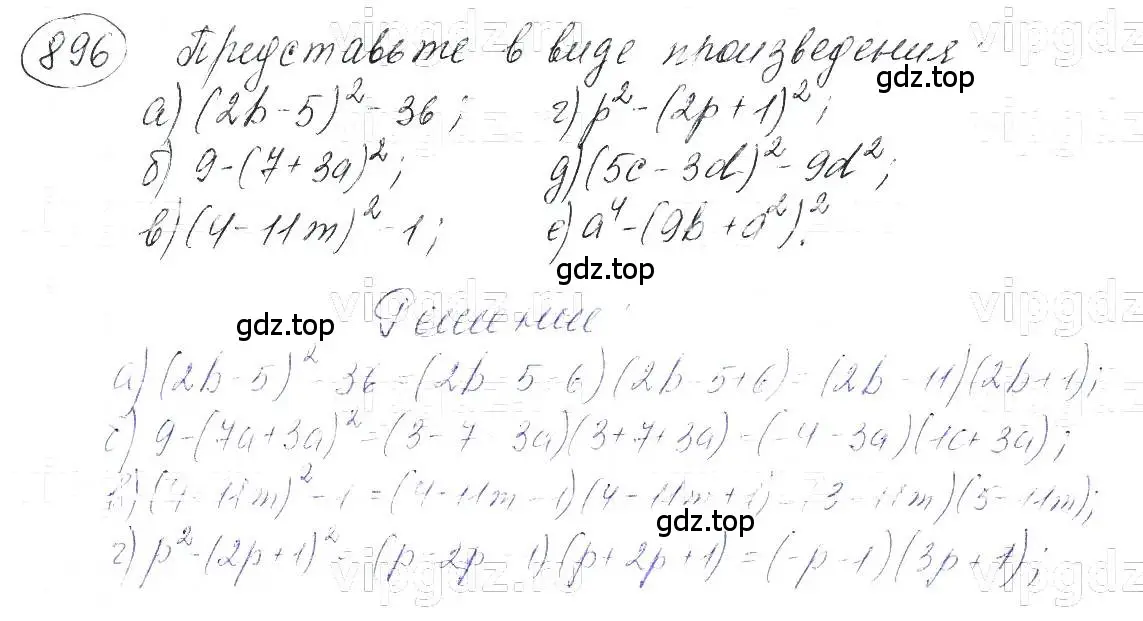 896 Представьте в виде произведения:
а) (2b - 5)² - 36; г) p² - (2p + 1)²;
б) 9 - (7 + 3a)²; д) (5c - 3d)² - 9d²;
в) (4 - 11m)² - 1; е) a⁴ - (9b + a²)².
Решение:
а) (2b - 5)² - 36 = (2b - 5 - 6)(2b - 5 + 6) = (2b - 11)(2b + 1);
б) 9 - (7a + 3a)² = (3 - 7 - 3a)(3 + 7 + 3a) = (-4 - 3a)(10 + 3a);
в) (4 - 11m)² - 1 = (4 - 11m - 1)(4 - 11m + 1) = (3 - 11m)(5 - 11m);
г) p² - (2p + 1)² = (p - 2p - 1)(p + 2p + 1) = (-p - 1)(3p + 1);
gdz.top
gdz.top
gdz.top
gdz.top
vipgdz.ru
vipgdz.ru
vipgdz.ru
vipgdz.ru